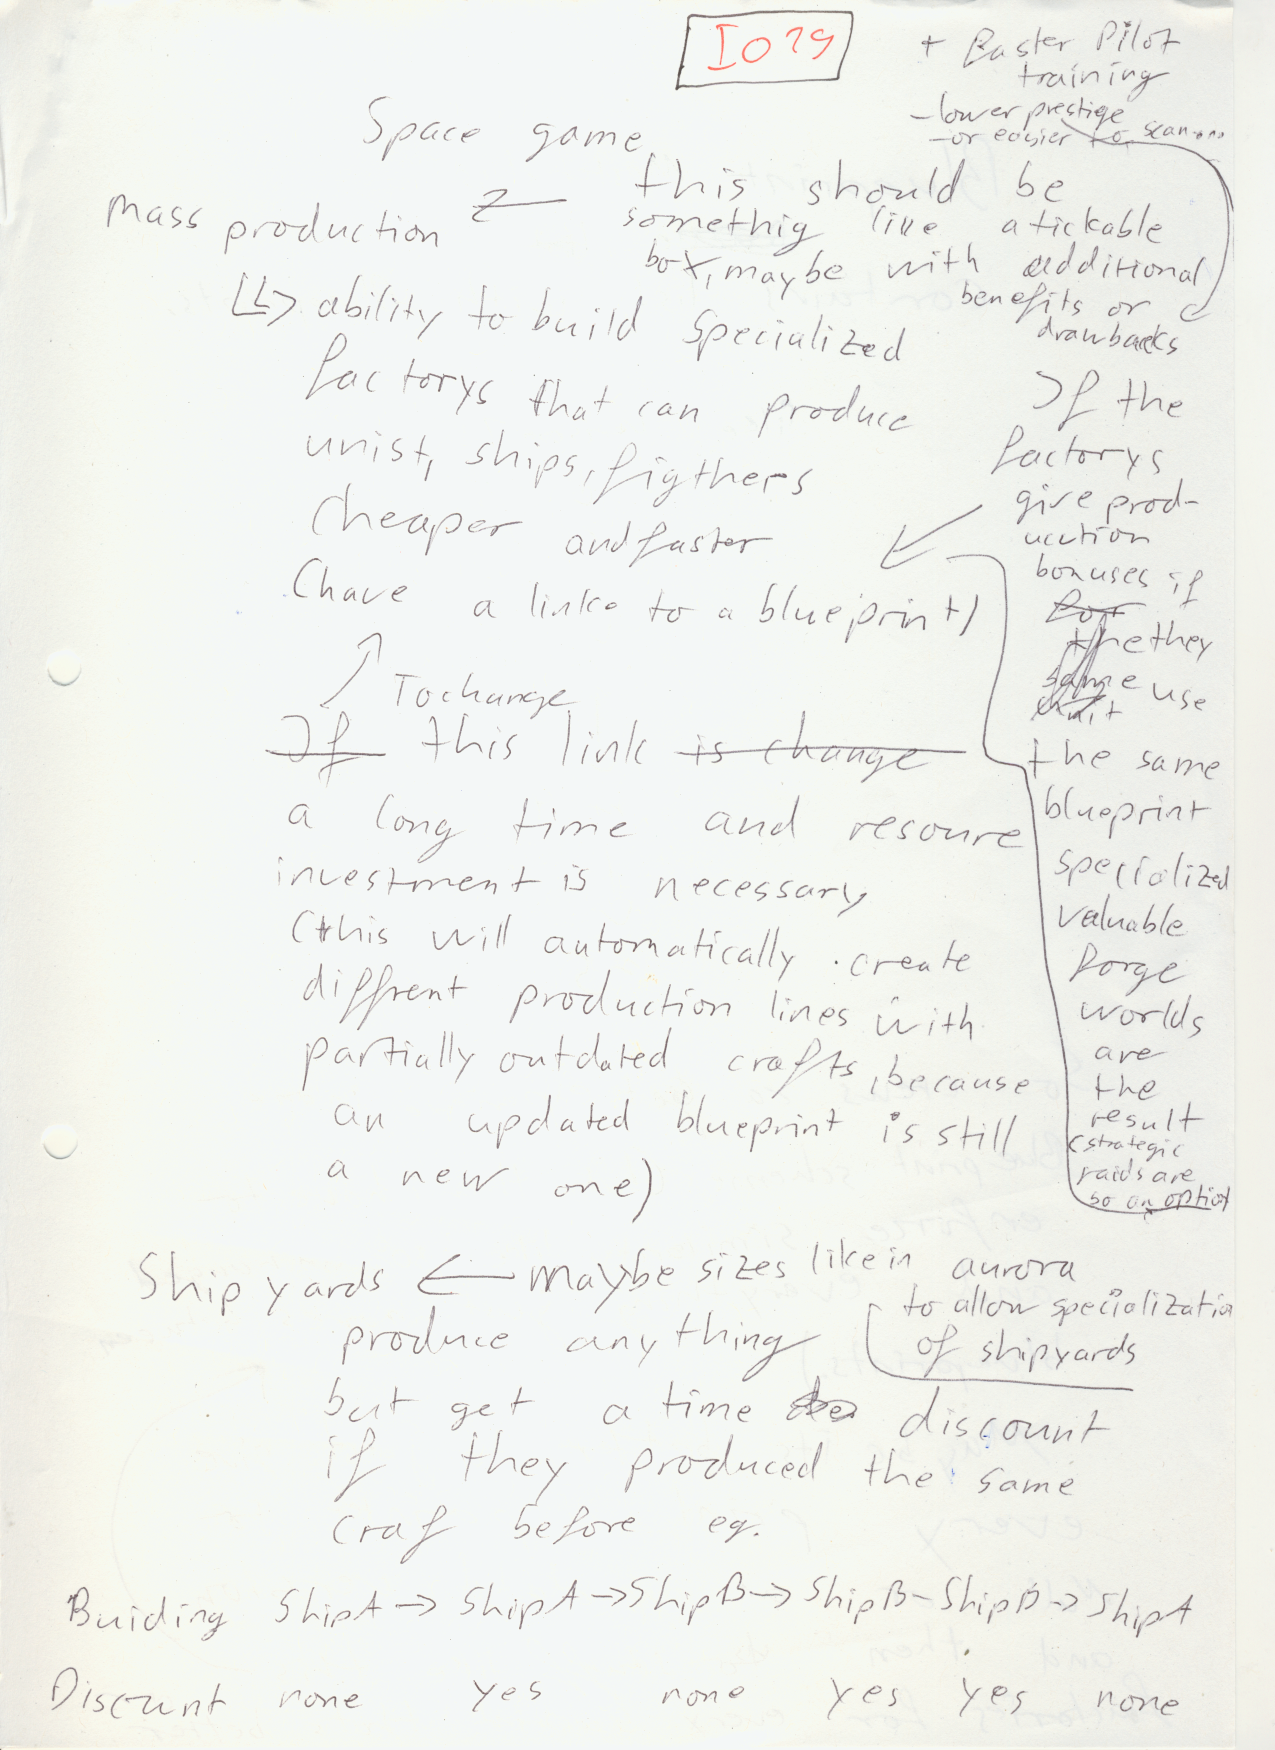 IO79
+ Faster Pilot
training
- lower prestige
- or easier to scan
Space game
mass production
this should be
somethig like a tickable
box, maybe with additional
benefits or
drawbacks
ability to build specialized
factorys that can produce
unist, ships, figthers
cheaper and faster
(have a link to a blueprint)
To change
If this link is change
a long time and resoure
investment is necessary
(this will automatically create
diffrent production lines with
partially outdated crafts, because
an updated blueprint is still
a new one)
If the
factorys
give prod-
uction
bonuses if
for
the they
same use
unit
the same
blueprint
specialized
valuable
forge
worlds
are
the
result
(strategic
raids are
so an option
Ship yards ← maybe sizes like in aurora
to allow specialization
of shipyards
produce anything
but get a time discount
if they produced the same
craf before eg.
Buiding ShipA → ShipA → ShipB → ShipB - ShipB → ShipA
Discount none yes none yes yes none